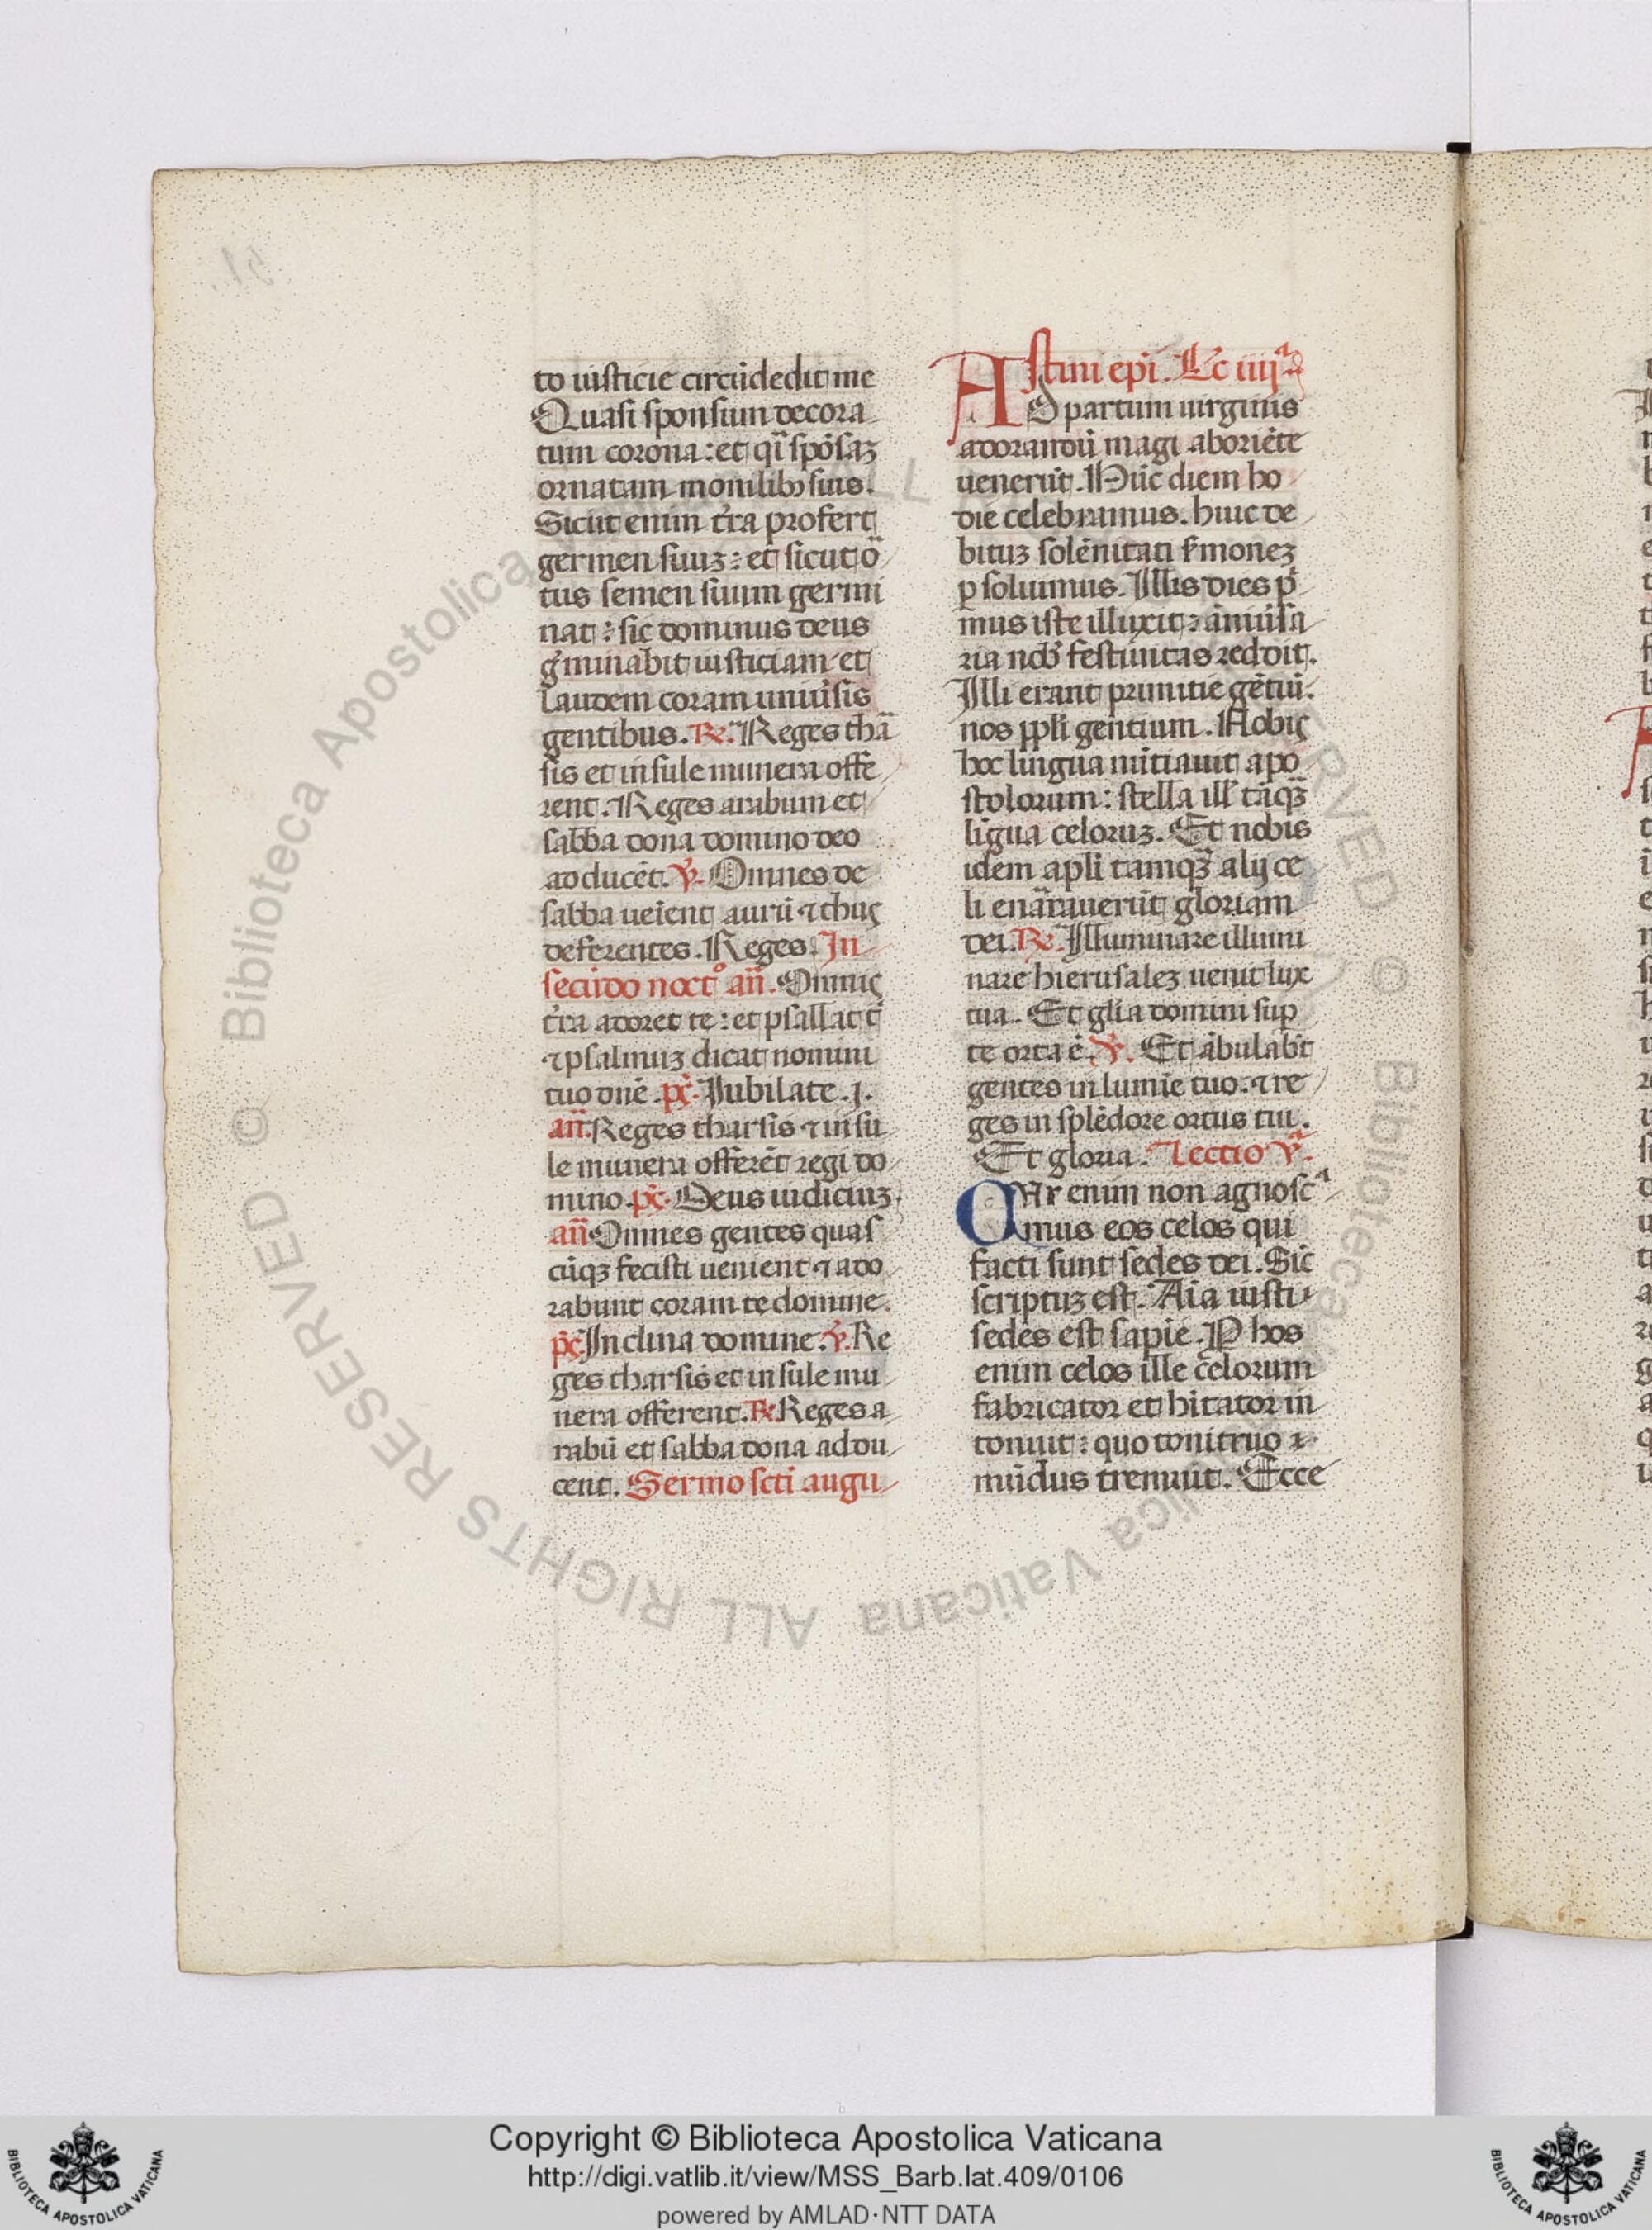 to iusticie circũdedit me
Quasi sponsum decora
tum corona: et q̃i spõsaꝫ
ornatam monilibꝫ suis.
Sicut enim t̃ra profert
germen suuꝫ: et sicut õ
tus semen suum germi
nat: sic dominus deus
g̃minabit iusticiam et
laudem coram uniũsis
gentibus. R̃. Reges thã
sis et insule munera offe
rent. Reges arabum et
sabba dona domino deo
adducẽt. ℣. Omnes de
sabba ueĩent aurũ ⁊ thuς
deferentes. Reges. In
secũdo noctº añ. Omniς
t̃ra adoret te: et psallat t̃
⁊ psalmuꝫ dicat nomini
tuo dñe. pς̃. Iubilate. j.
añ. Reges tharsis ⁊ insu
le munera offerẽt regi do
mino. pς̃. Deus iudiciuꝫ.
añ Omnes gentes quas
cũqꝫ fecisti uenient ⁊ ado
rabunt coram te domine.
pς̃. Inclina domine. ℣. Re
ges tharsis et insule mu
nera offerent. R̃. Reges a
rabũ et sabba dona addu
cent. Sermo scti augu
stini epĩ. Lc̃ iiijª
AD partum uirginis
adorandũ magi ab oriẽte
uenerũt. Hũc diem ho
die celebramus. huic de
bituꝫ solẽnitati s̃moneꝫ
ꝑsoluimus. Illis dies p̃
mus iste illuxit: ãniũsa
ria nob̃ festiuitas redoit.
Illi erant primitie gẽtiũ.
nos ppl̃i gentium. Nobiς
hoc lingua nũtiauit apo
stolorum: stella ill̃ tãqꝫ̃
lĩgua celoruꝫ. Et nobis
idem apl̃i tamqꝫ̃ alij ce
li enãrauerũt gloriam
dei. R̃. Illuminare illumi
nare hierusaleꝫ uenit lux
tua. Et gl̃ia domini sup̃
te orta ẽ. ℣. Et ãbulab̃t
gentes in lumĩe tuo. ⁊ re
ges in splẽdore ortus tui.
Et gloria. Lectio vª.
CUr enim non agnoscª
mus eos celos qui
facti sunt sedes dei. Sic̃
scriptuꝫ est. Aĩa iusti
sedes est sapiẽ. P̱ hos
enim celos ille celorum
fabricator et hĩtator in
tonuit: quo tonitruo
mũdus tremuit. Ecce
Copyright © Biblioteca Apostolica Vaticana
http://digi.vatlib.it/view/MSS_Barb.lat.409/0106
powered by AMLAD·NTT DATA